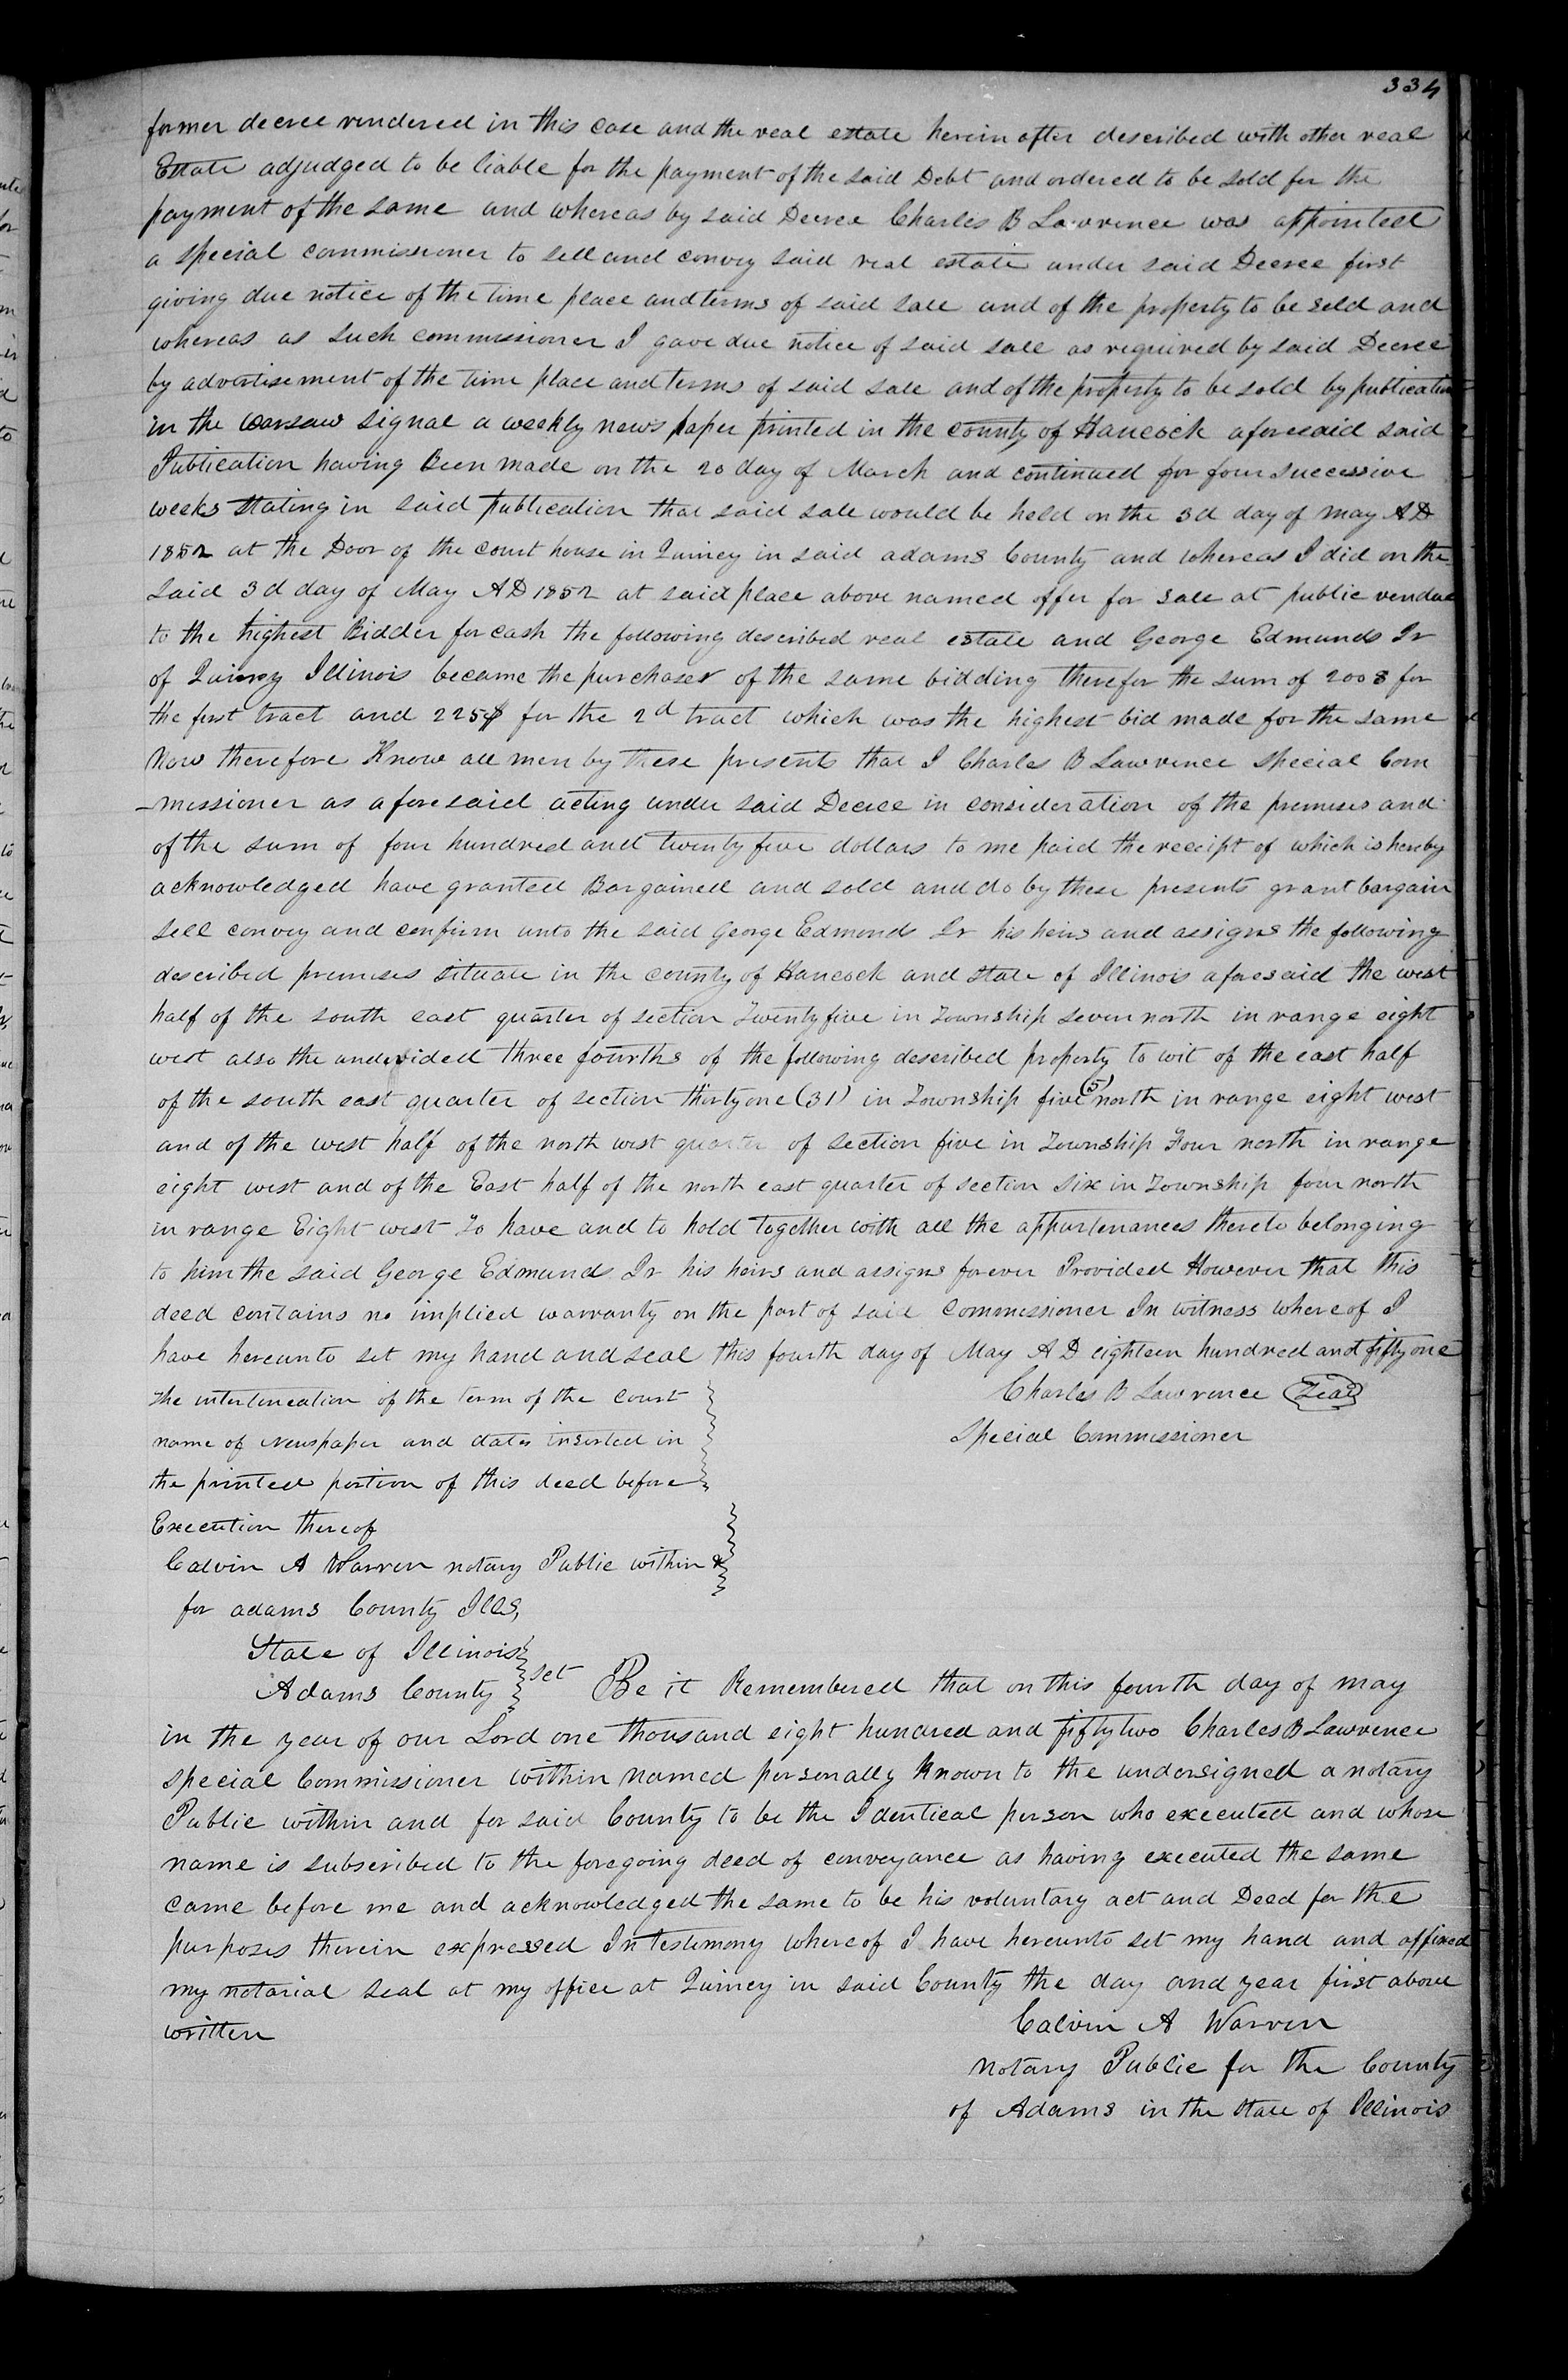 334
former decree rendered in this case and the real estate herein after described with other real
Estate adjudged to be liable for the payment of the said Debt and ordered to be sold for the
payment of the same and whereas by said Decree Charles B Lawrence was appointed
a special commissioner to sell and convey said real estate under said Decree first
giving due notice of the time place and terms of said sale and of the property to be sold and
whereas as such commissioner I gave due notice of said sale as required by said Decree
by advertisement of the time place and terms of said sale and of the property to be sold by publication
in the warsaw signal a weekly news paper printed in the county of Hancock aforesaid said
Publication having Been made on the 20 day of March and continued for four successive
weeks stating in said publication that said sale would be held on the 3d day of may AD
1852 at the Door of the court house in Quincy in said adams County and whereas I did on the
said 3d day of May AD 1852 at said place above named offer for sale at public vendue
to the highest Bidder for cash the following described real estate and George Edmunds Jr
of Quincy Illinois became the purchaser of the same bidding therefor the sum of 200$ for
the first tract and 225$ for the 2d tract which was the highest bid made for the same
Now therefore Know all men by these presents that I Charles B Lawrence special Com
-missioner as aforesaid acting under said Decree in consideration of the premises and
of the sum of four hundred and twenty five dollars to me paid the receipt of which is hereby
acknowledged have granted Bargained and sold and do by these presents grant bargain
sell convey and confirm unto the said George Edmonds Jr his heirs and assigns the following
described premises situate in the county of Hancock and state of Illinois aforesaid the west
half of the south east quarter of section Twenty five in Township seven north in range eight
west also the undevided three fourths of the following described property to wit of the east half
of the south east quarter of section thirty one (31) in Township five (5) north in range eight west
and of the west half of the north west quarter of section five in Township Four north in range
eight west and of the East half of the north east quarter of section six in Township four north
in range Eight west To have and to hold together with all the appurtenances thereto belonging
to him the said George Edmunds Jr his heirs and assigns forever Provided However that this
deed contains no implied warranty on the part of said commissioner In witness whereof I
have hereunto set my hand and seal this fourth day of May AD eighteen hundred and fifty one
Charles B Lawrence Seal
Special Commissioner
The interlineation of the term of the court
name of newspaper and dates inserted in
the printed portion of this deed before
Execution thereof
Calvin A Warren notary Public within &
for adams County Ills,
State of Illinois
Adams County sct Be it Remembered that on this fourth day of may
in the year of our Lord one thousand eight hundred and fifty two Charles B Lawrence
special Commissioner within named personally known to the undersigned a notary
Public within and for said County to be the Identical person who executed and whose
name is subscribed to the foregoing deed of conveyance as having executed the same
came before me and acknowledged the same to be his voluntary act and Deed for the
purposes therein expressed In testimony whereof I have hereunto set my hand and affixed
my notarial seal at my office at Quincy in said County the day and year first above
written
Calvin A Warren
notary Public for the County
of Adams in the state of Illinois